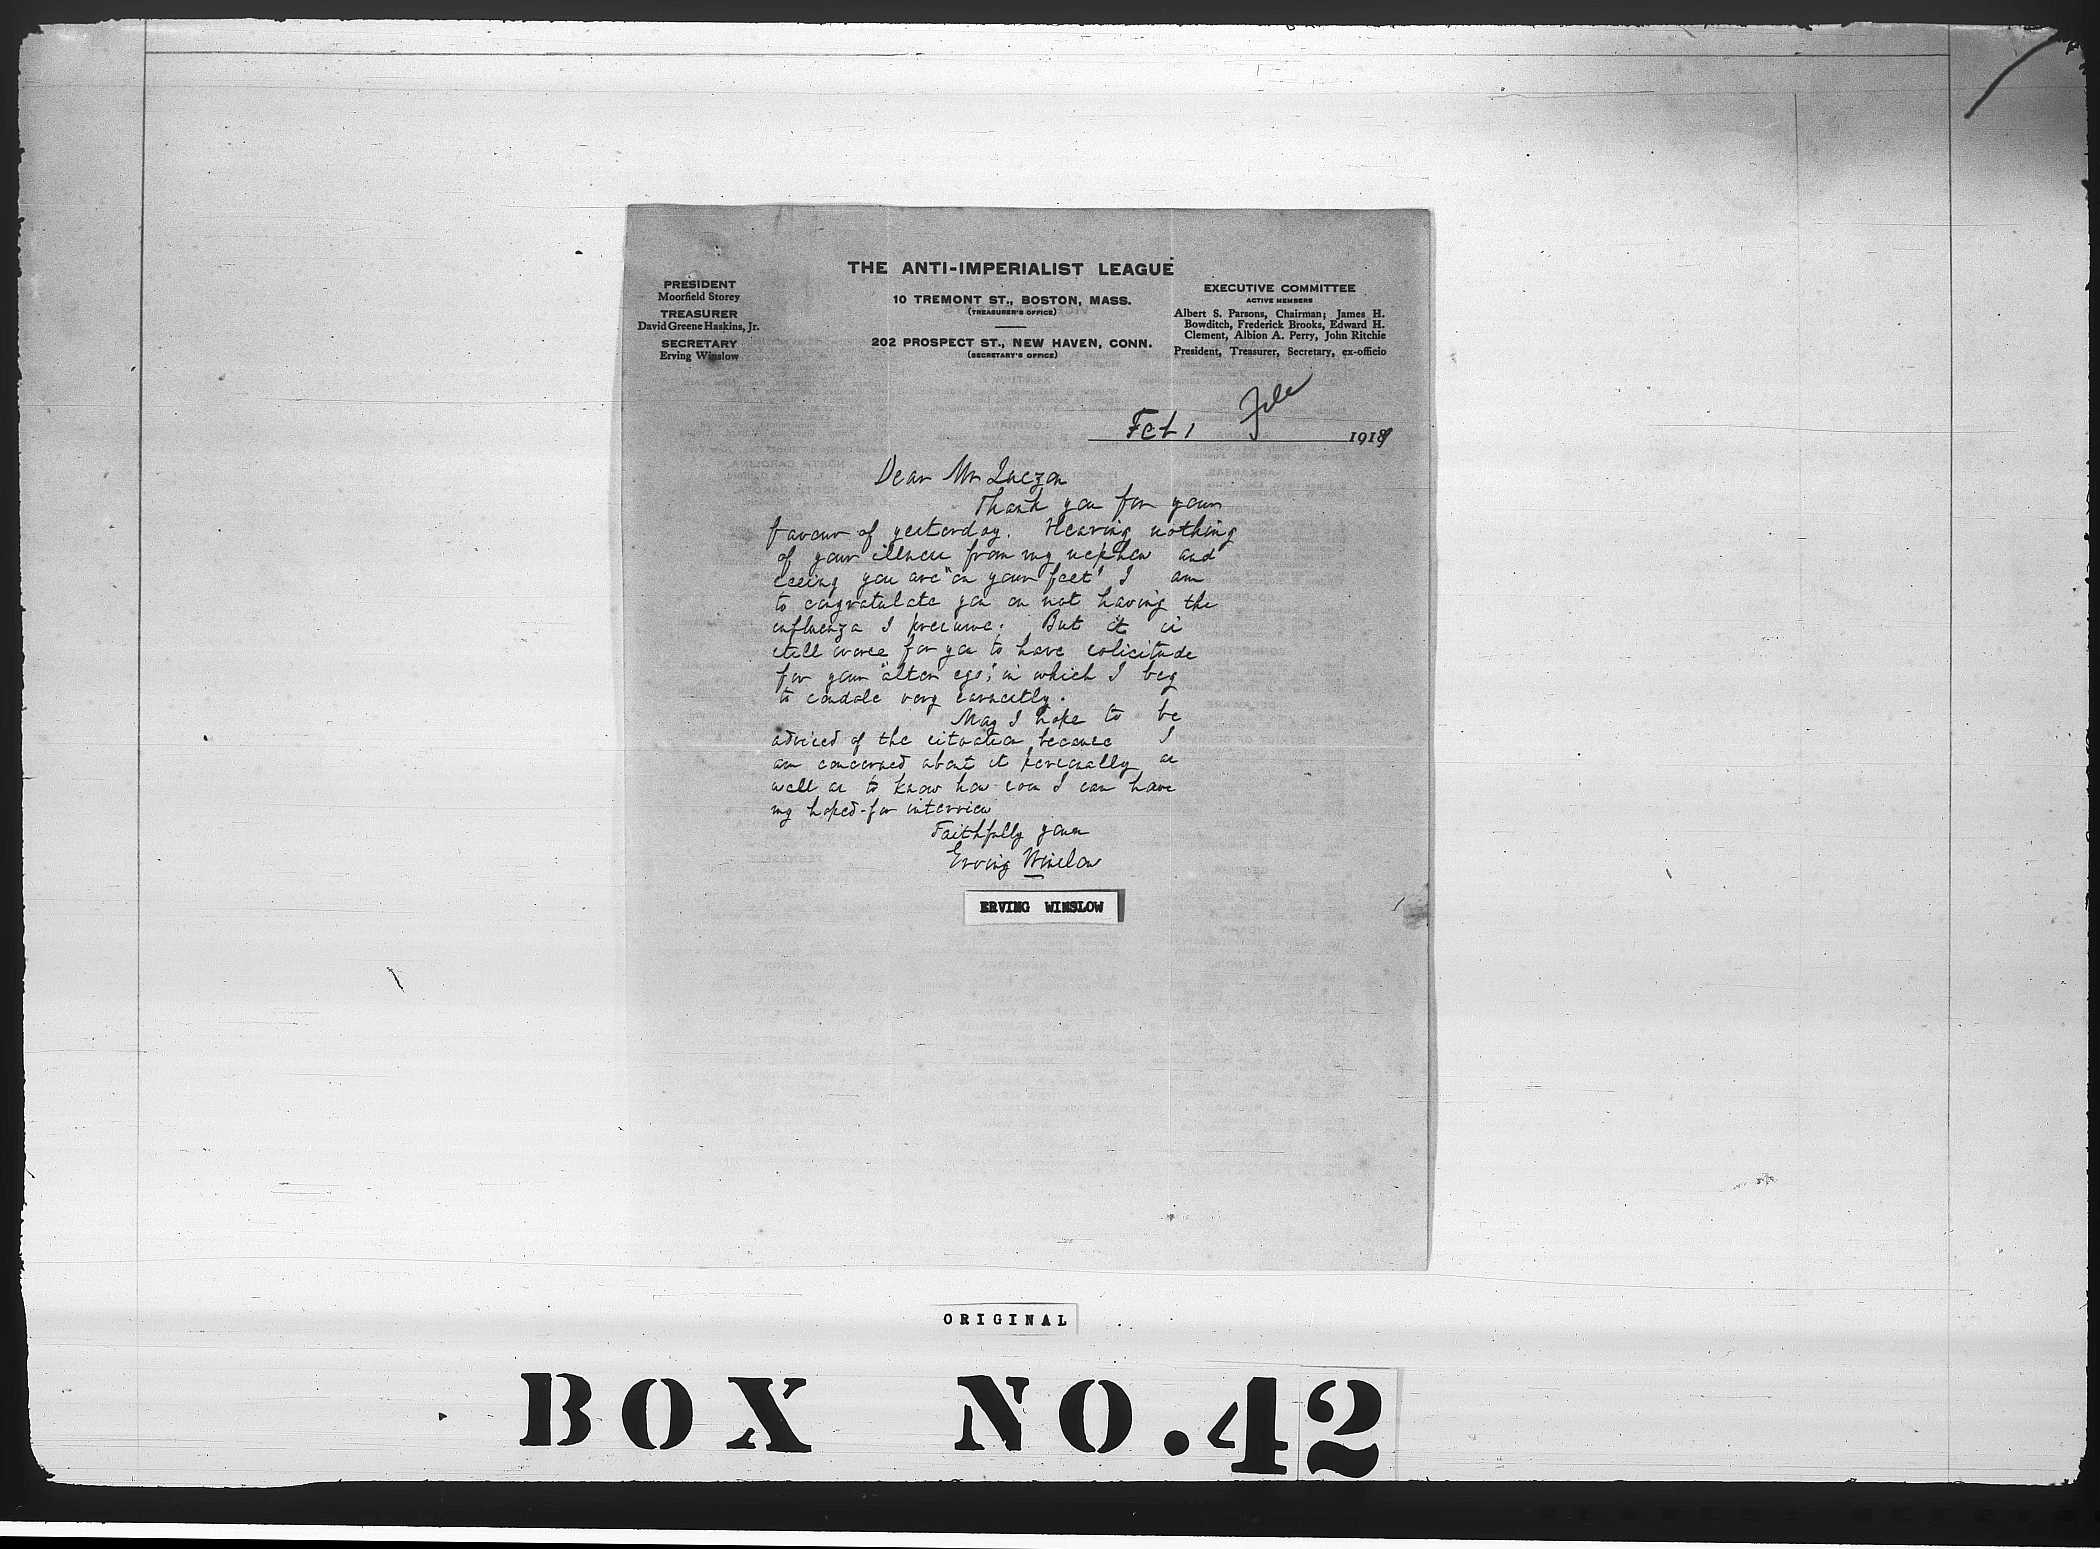 THE ANTI-IMPERIALIST LEAGUE
10 TREMONT ST., BOSTON, MASS.
(TREASURER'S OFFICE)
202 PROSPECT ST., NEW HAVEN, CONN.
(SECRETARY'S OFFICE)
PRESIDENT
Moorfield Storey
TREASURER
David Greene Haskins, Jr.
SECRETARY
Erving Winslow
EXECUTIVE COMMITTEE
ACTIVE MEMBERS
Albert S. Parsons, Chairman; James H.
Bowditch, Frederick Brooks, Edward H.
Clement, Albion A. Perry, John Ritchie
President, Treasurer, Secretary, ex-officio
File
Feb 1 1919
Dear Mr Quezon
Thank you for your
favour of yesterday. Hearing nothing
of your illness from my nephew and
seeing you are "on your feet" I am
to congratulate you on not having the
influenza I presume. But it is
still worse for you to have solicitude
for your "alter ego", in which I beg
to condole very earnestly.
May I hope to be
advised of the situation because I
am concerned about it personally as
well as to know how soon I can have
my hoped-for interview
Faithfully yours
Erving Winslow
ERVING WINSLOW
ORIGINAL
BOX NO. 42